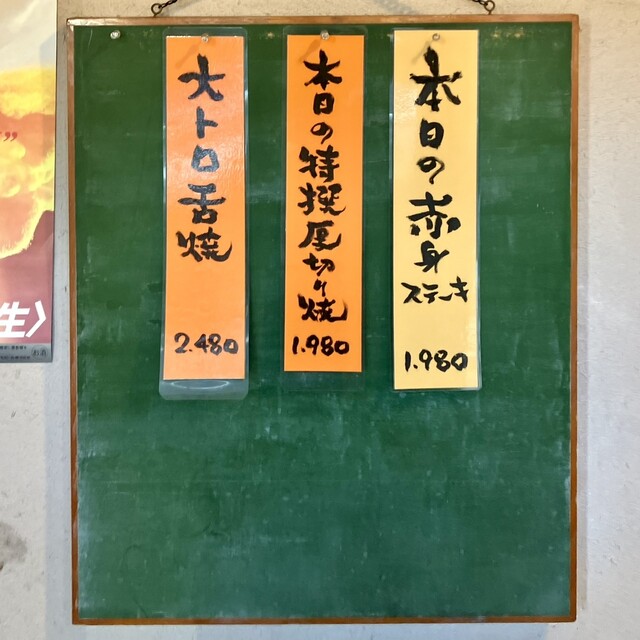 本日の赤身ステーキ
1.980
本日の特撰厚切り焼
1.980
大トロ舌焼
2.480
生〉
お酒